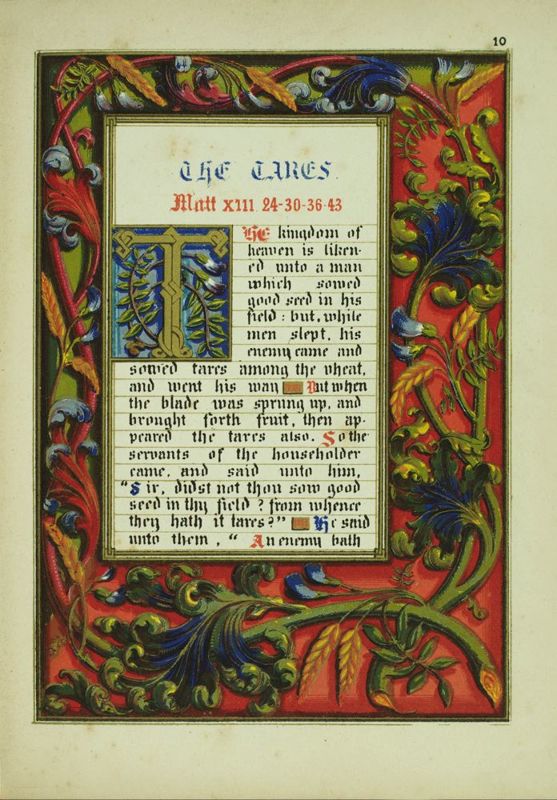 10
THE TARES
Matt XIII 24-30-36-43
THE kingdom of
heaven is liken-
ed unto a man
which sowed
good seed in his
field : but, while
men slept, his
enemy came and
sowed tares among the wheat,
and went his way But when
the blade was sprung up, and
brought forth fruit, then ap-
peared the tares also. So the
servants of the householder
came, and said unto him,
"Sir, didst not thou sow good
seed in thy field ? from whence
then hath it tares?" He said
unto them , " An enemy hath